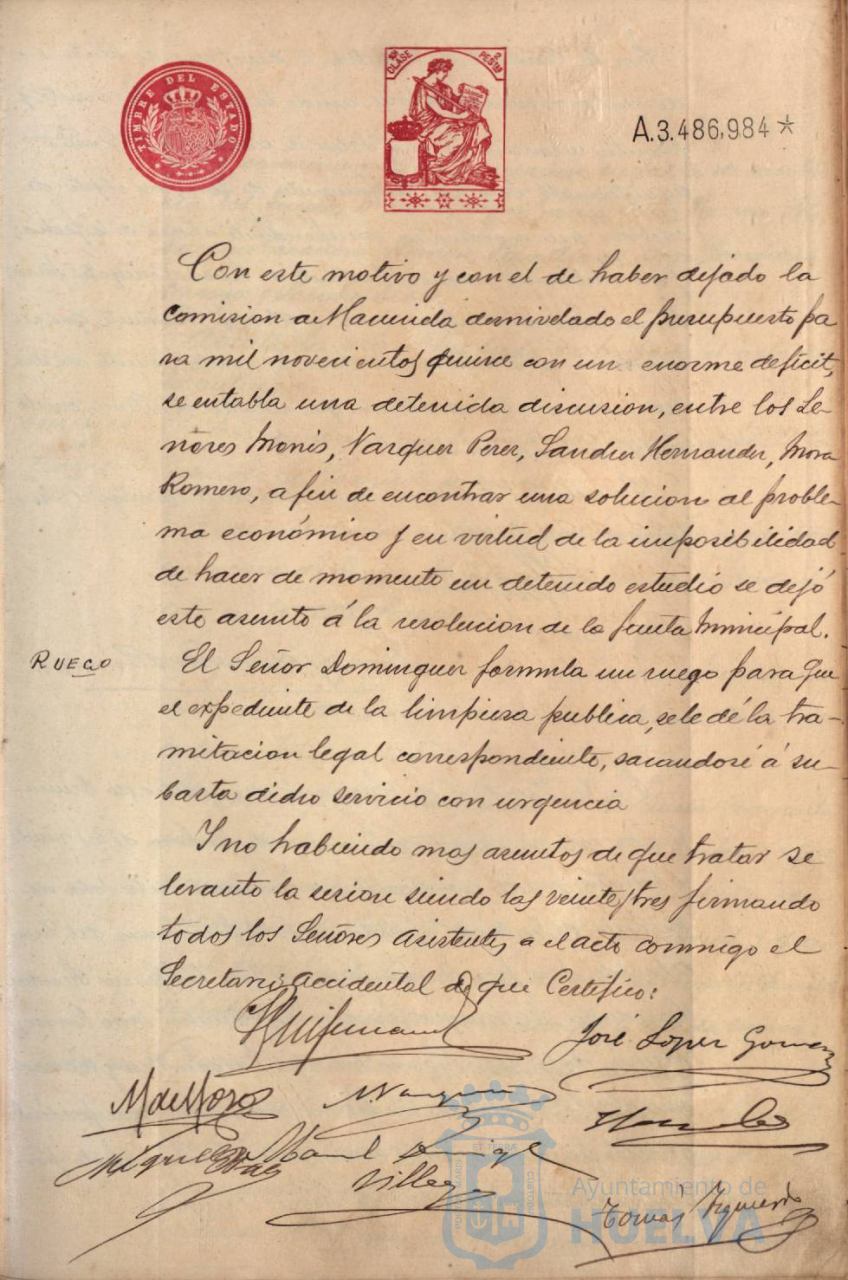 TIMBRE DEL ESTADO
CLASE
PESTAS
A.3.486,984*
Con este motivo y con el de haber dejado la
Comision a Hacienda desnivelado el presupuesto pa
ra mil novecientos quince con un enorme deficit,
se entabla una detenida discusion, entre los Se-
ñores Monis, Vazquez Perez, Sanchez Hernandez, Mora
Romero, a fin de encontrar una solucion al proble-
ma económico y en virtud de la imposibilidad
de hacer de momento un detenido estudio se dejó
este asunto á la resolucion de la Junta Municipal.
RUEGO
El Señor Dominguez formula un ruego para que
el expediente de la limpieza publica, se le dé la tra-
mitacion legal correspondiente, sacandose á su-
basta dicho servicio con urgencia
Y no habiendo mas asuntos de que tratar se
levanto la sesion siendo las veinte y tres firmando
todos los Señores Asistentes a el acto conmigo el
Secretario Accidental de que Certifico:
José Lopez Gomez
M de Mora
Villegas
Tomás Izquierdo
Ayuntamiento de
HUELVA